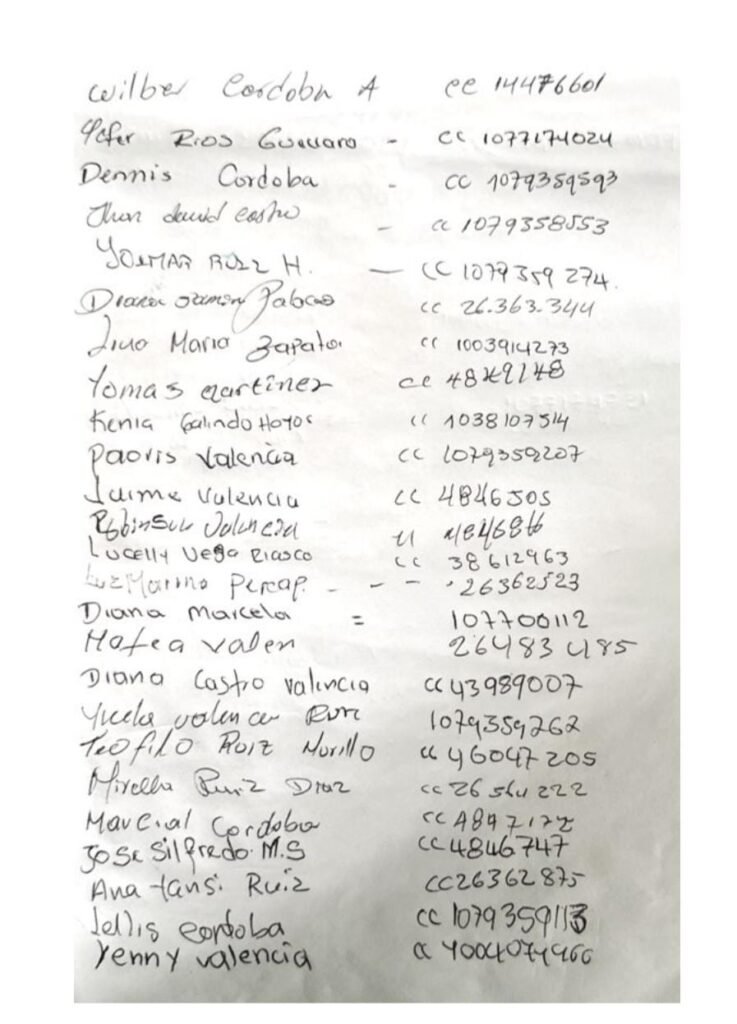 Wilber Cordoba A cc 14476601
Yefer Rios Guevara - cc 1077174024
Dennis Cordoba - cc 1079359593
Jhon david castro - cc 1079358553
YOIMAR RUIZ H. - CC 1079359274.
Diana Pabcao cc 26.363.344
Lina Maria Zapata cc 1003914273
Tomas martinez cc
Kenia Galindo Hoyos cc 1038107514
Paoris Valencia cc 1079359207
Jaime Valencia cc 4846505
Robinson Valencia
Lucelly Vega Riasco cc 38612963
Luz Marina Perea - - - 26362523
Diana Marcela = 107700112
Valen 26483485
Diana Castro valencia cc 43989007
valencia 1079359262
Teofilo Ruiz Murillo cc 46047205
Mirella Ruiz Diaz cc 26564222
Marcial Cordoba cc
Jose Silfredo. M.S cc 4846747
Ana tansi. Ruiz cc 26362875
Lellis cordoba cc 1079359113
Yenny valencia cc